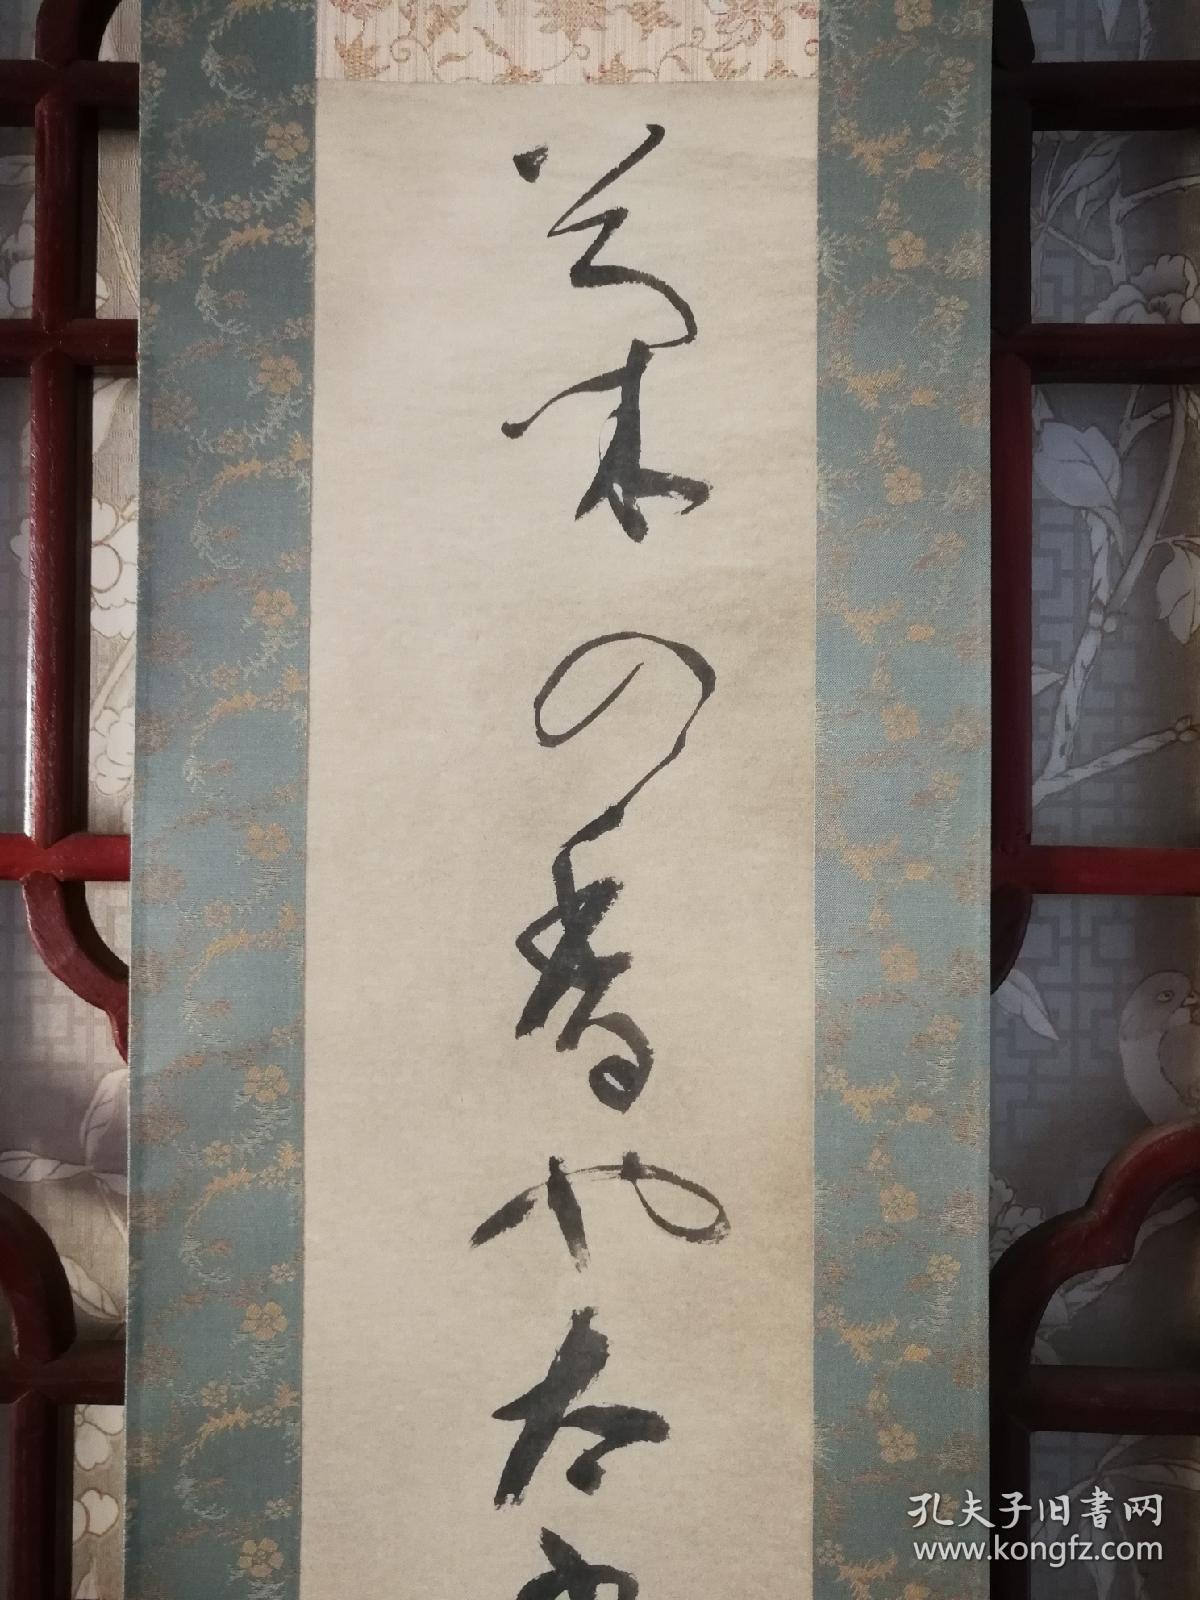 菊の香や
孔夫子旧書网
www.kongfz.com